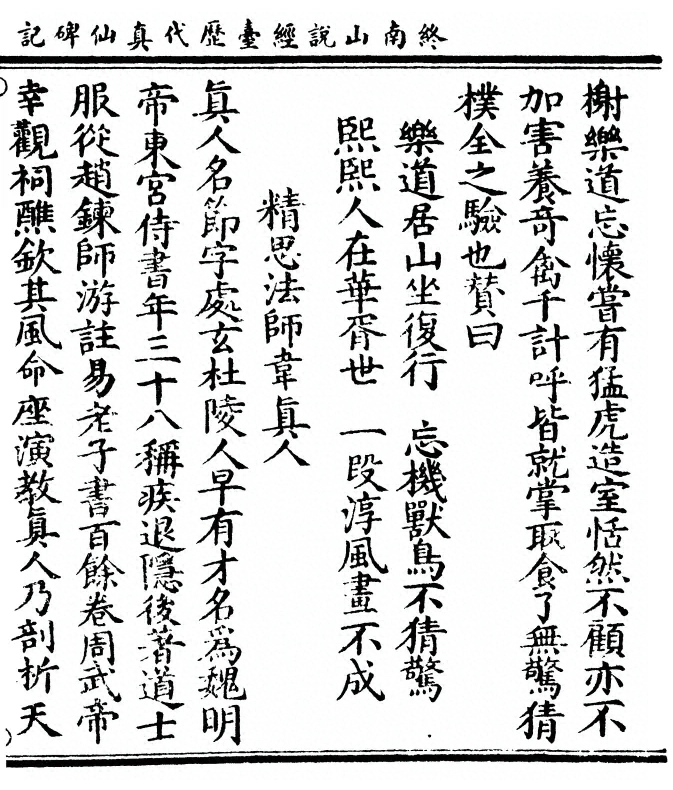 終南山說經臺歷代真仙碑記
榭樂道忘懷嘗有猛虎造室恬然不顧亦不
加害養奇禽千計呼皆就掌取食了無驚猜
樸全之驗也贊曰
樂道居山坐復行 忘機獸鳥不猜驚
熙熙人在華胥世 一段淳風畫不成
精思法師韋真人
真人名節字處玄杜陵人早有才名爲魏明
帝東宮侍書年三十八稱疾退隱後著道士
服從趙鍊師游註易老子書百餘卷周武帝
幸觀祠醮欽其風命座演教真人乃剖析天